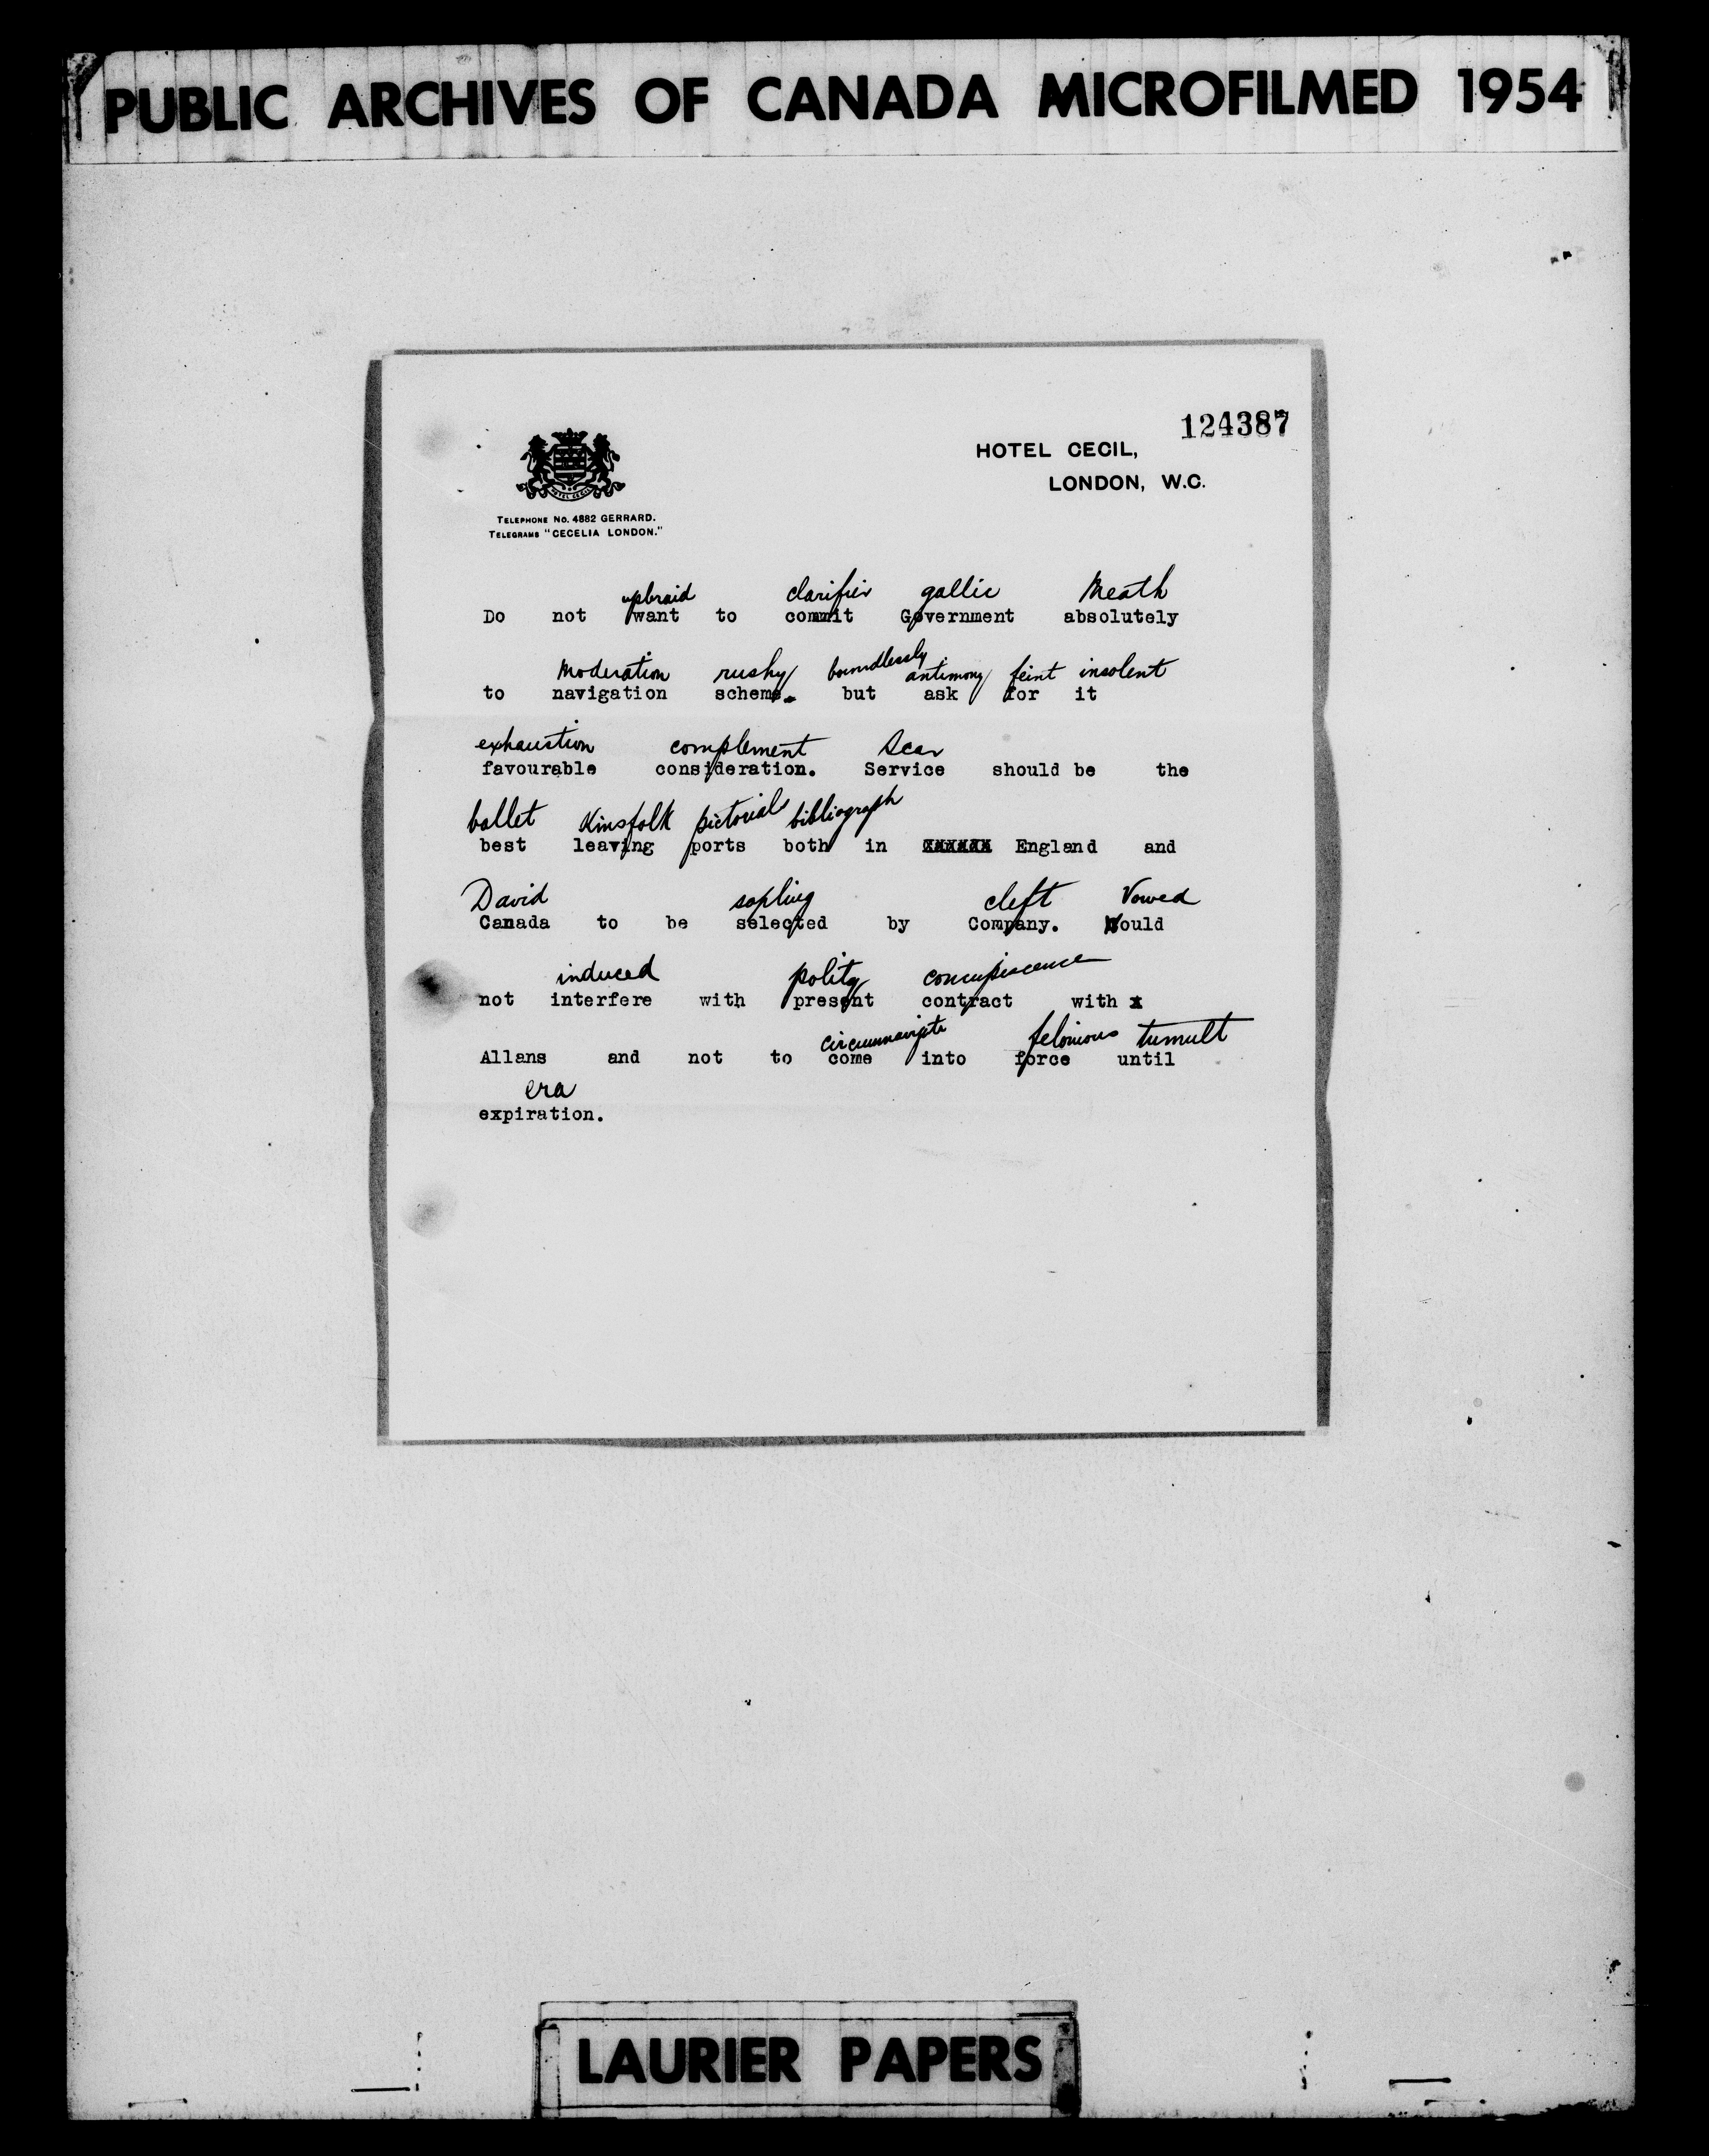 PUBLIC ARCHIVES OF CANADA MICROFILMED 1954
124387
HOTEL CECIL,
LONDON, W.C.
HOTEL CECIL
TELEPHONE No. 4882 GERRARD.
TELEGRAMS "CECELIA LONDON."
upbraid clarifier gallic Meath
Do not want to commit Government absolutely
Moderation rushy boundlessly antimony feint insolent
to navigation scheme. but ask for it
exhaustion complement Scar
favourable consideration. Service should be the
ballet Kinsfolk pictorial bibliograph
best leaving ports both in England and
David sapling cleft Vowed
Canada to be selected by Company. Would
induced polity concupiscence
not interfere with present contract with x
circumnavigate felonious tumult
Allans and not to come into force until
era
expiration.
LAURIER PAPERS